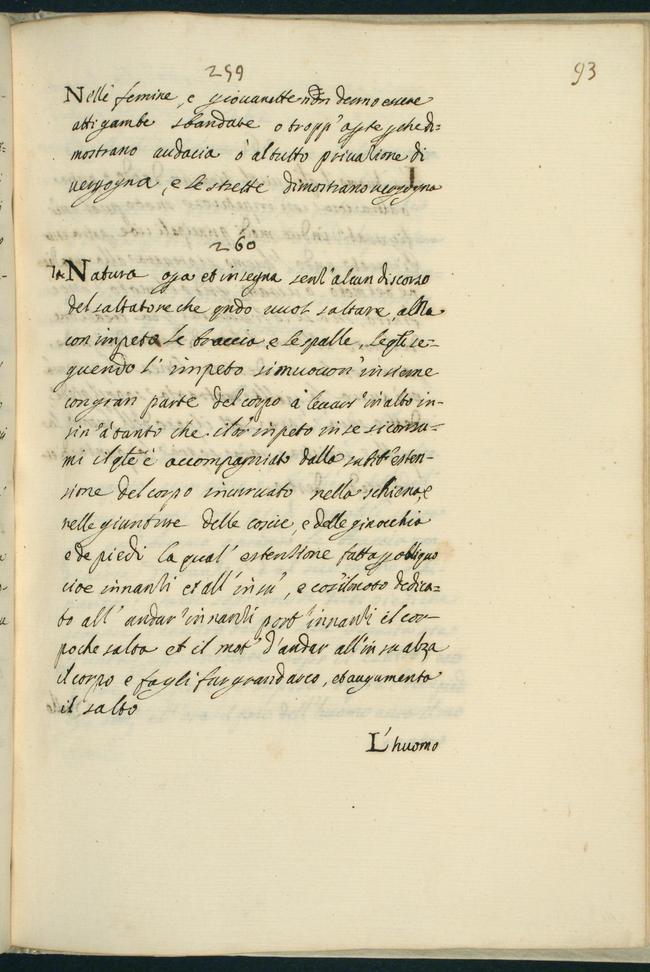 259
93
Nelle femine, e giovanette non devno essere
atti gambe sbandate o tropp' apte pche di=
mostrano audacia ò al tutto privatione di
vergogna, e le strette dimostrano vergogna
260
La Natura opa et insegna senz' alcun discorso
del saltatore che qndo vuol saltare, alza
con impeto le braccia, e le spalle, le qli se=
guendo l' impeto si muovon' insieme
con gran parte del corpo à levar' in alto in-
sin' à tanto che il lor' impeto in se si consu=
mi il qle è accompagnato dalla subit' esten-
sione del corpo incurvato nella schiena, e
nelle giunture delle coscie, e delle ginocchia
e de piedi la qual' estensione fatta p obliquo
cioe innanzi et all' in sù, e cosi il moto dedica=
to all' andar' innanzi port' innanzi il cor-
po che salta et il mot' d'andar all' in su alza
il corpo e fagli far grand arco, et augumenta
il salto
L' huomo